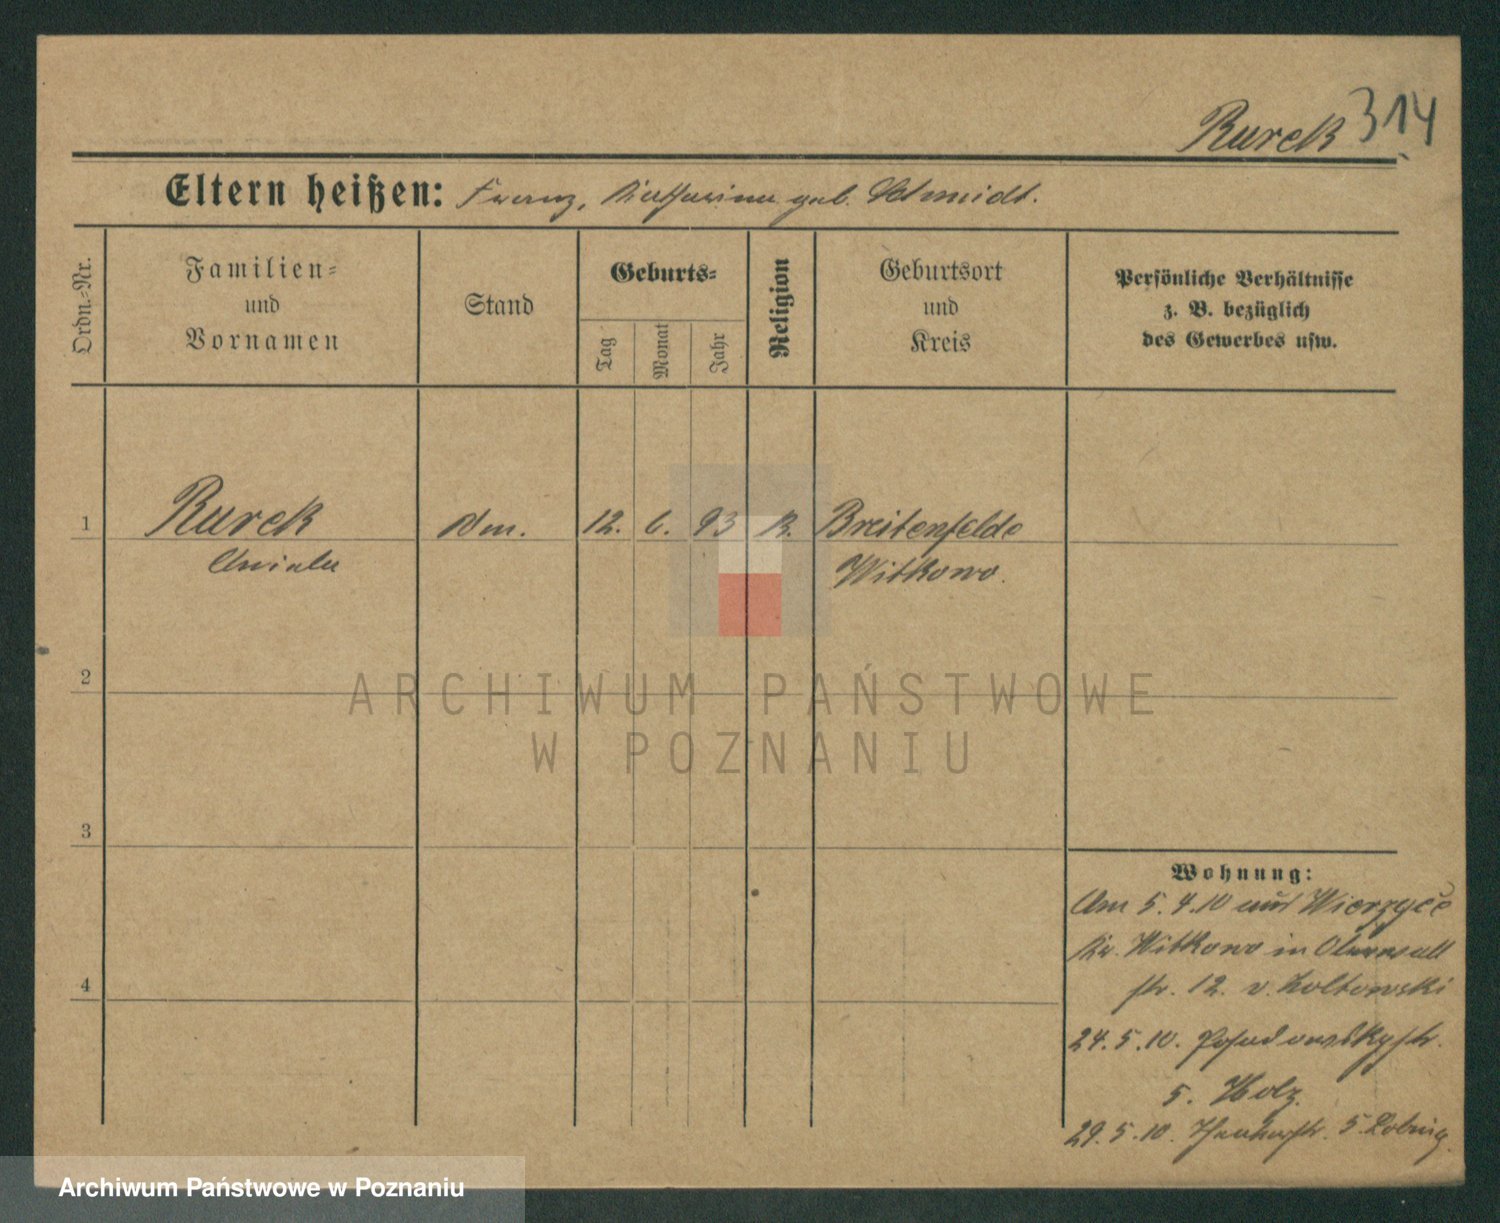 Rurek 314
Eltern heißen: Franz, Katharina geb. Schmidt.
Ordn.=Nr.
Familien=
und
Vornamen
Stand
Geburts=
Tag
Monat
Jahr
Religion
Geburtsort
und
Kreis
Persönliche Verhältnisse
z. B. bezüglich
des Gewerbes usw.
1 Rurek 12. 6. 93 K. Breitenfelde
Aniela Witkowo.
2
3
4
Wohnung:
Am 5.4.10 aus Wierzyce
Kr. Witkowo in Oberwall
str. 12. v. Zoltowski
24.5.10. Posadowskystr.
5. Holz.
29.5.10. 5
ARCHIWUM PAŃSTWOWE
W POZNANIU
Archiwum Państwowe w Poznaniu